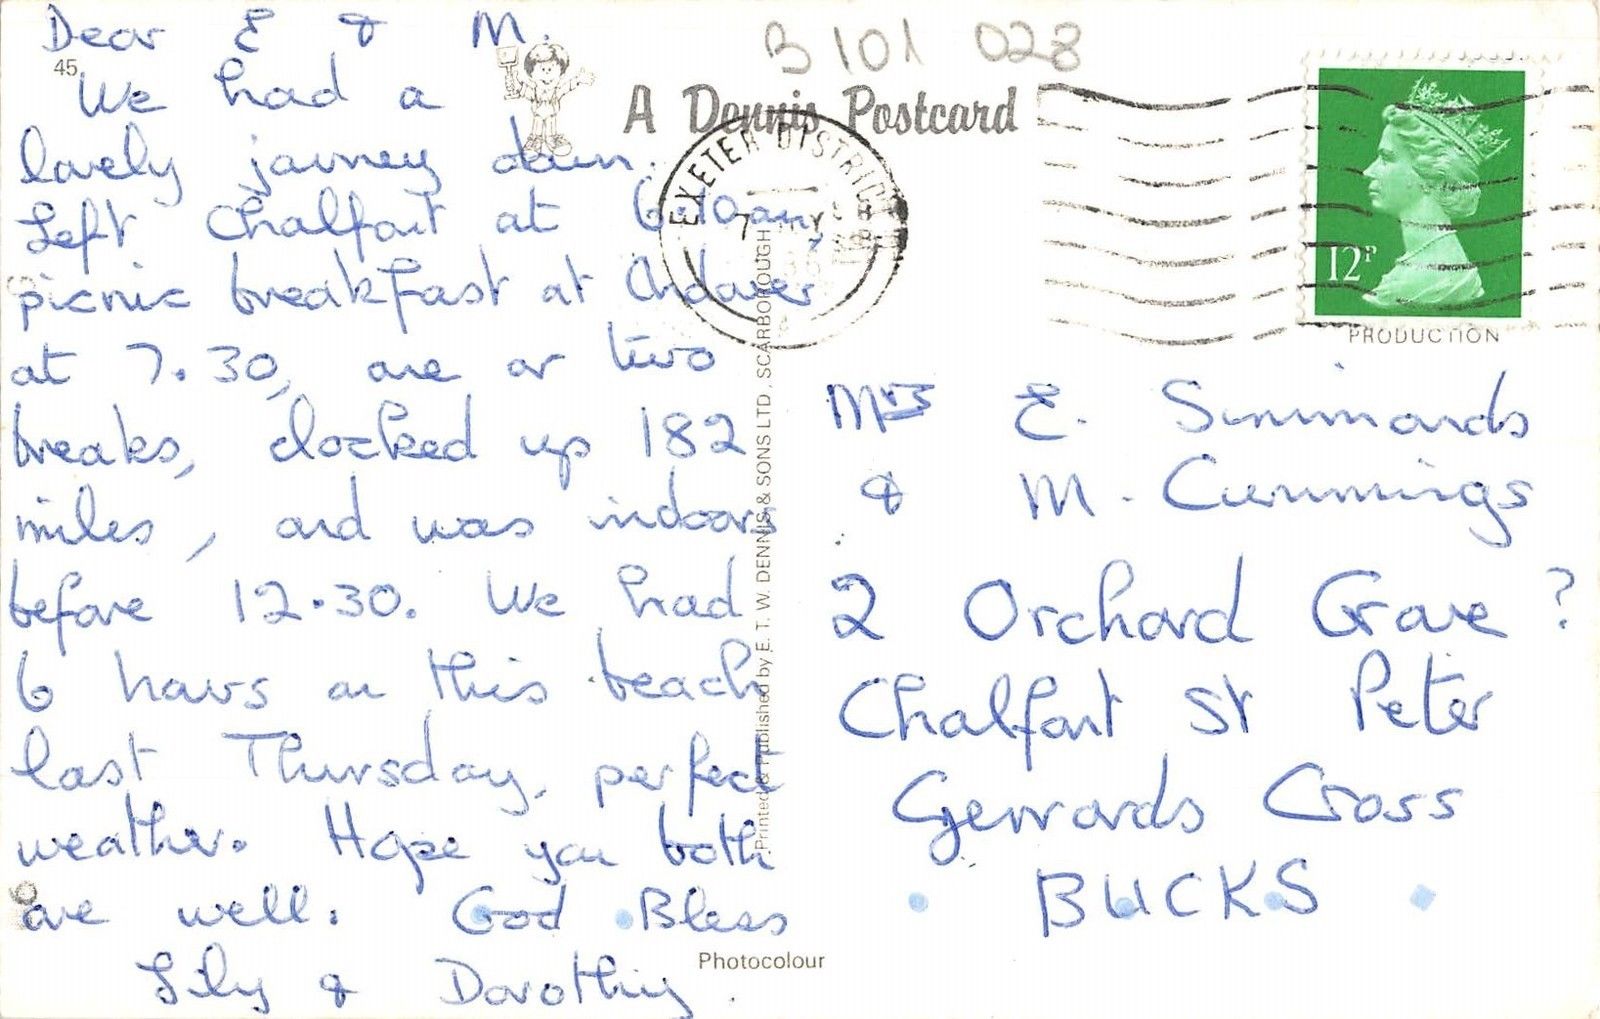 B 101 028
Dear E & M.
45
We had a
lovely journey down.
Left Chalfont at 6.10am
picnic breakfast at Andover
at 7.30, one or two
breaks, clocked up 182
miles, and was indoors
before 12.30. We had
6 hours on this beach
last Thursday, perfect
weather. Hope you both
are well. God Bless
Lily & Dorothy.
A Dennis Postcard
EXETER DISTRICT
7
12P
PRODUCTION
Printed & Published by E. T. W. DENNIS & SONS LTD., SCARBOROUGH
Mrs E. Simmonds
& M. Cummings
2 Orchard Grove ?
Chalfont St Peter
Gerrards Cross
BUCKS
Photocolour